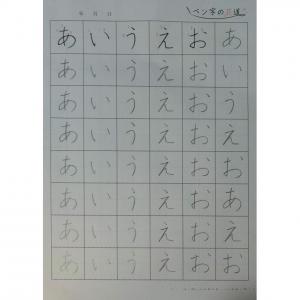 年 月 日
ペン字の花道
あ い う え お あ
あ い う え お い
あ い う え お う
あ い う え お え
あ い う え お お
あ い う え お あ
あ い う え お え
あ い う え お お